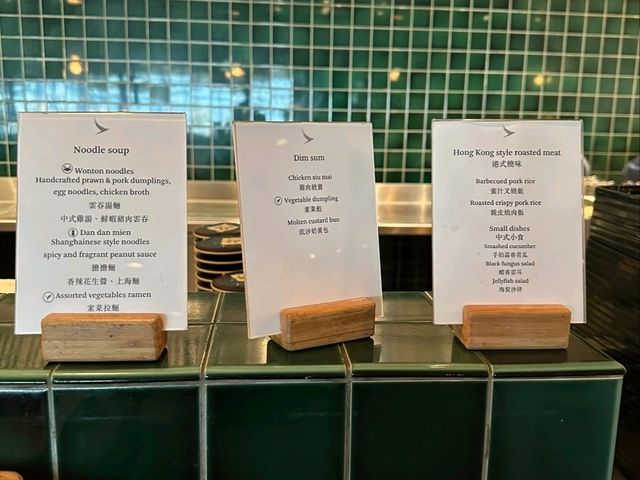 Noodle soup
Wonton noodles
Handcrafted prawn & pork dumplings,
egg noodles, chicken broth
雲吞湯麵
中式雞湯、鮮蝦豬肉雲吞
Dan dan mien
Shanghainese style noodles
spicy and fragrant peanut sauce
擔擔麵
香辣花生醬、上海麵
Assorted vegetables ramen
素菜拉麵
Dim sum
Chicken siu mai
雞肉燒賣
Vegetable dumpling
素菜餃
Molten custard bun
流沙奶黃包
Hong Kong style roasted meat
港式燒味
Barbecued pork rice
蜜汁叉燒飯
Roasted crispy pork rice
脆皮燒肉飯
Small dishes
中式小食
Smashed cucumber
手拍蒜香青瓜
Black fungus salad
醋香雲耳
Jellyfish salad
海蜇沙律